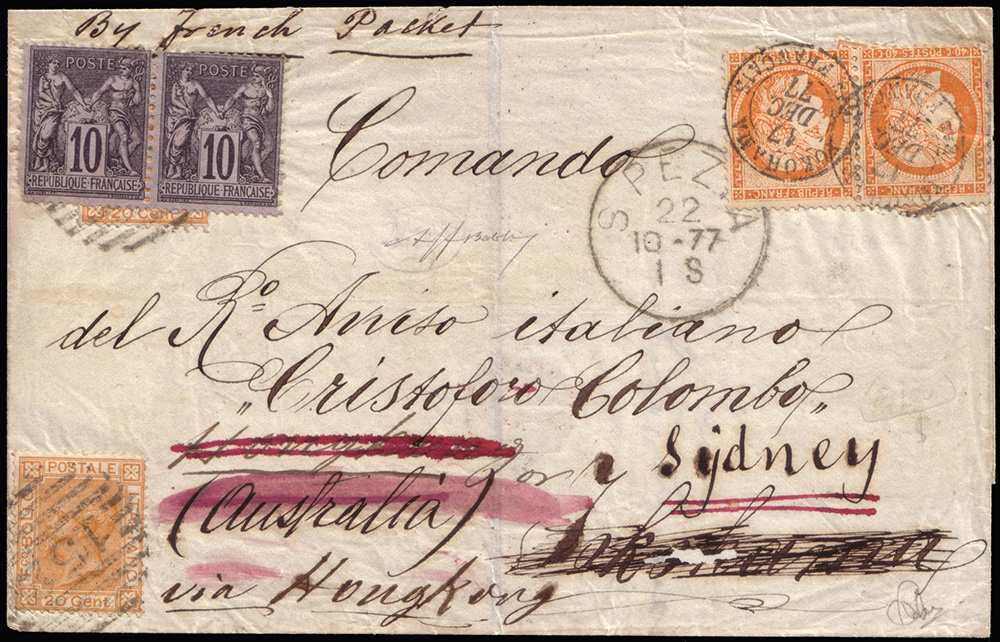 By French Packet
POSTE
10
REPUBLIQUE FRANÇAISE
POSTE
10
REPUBLIQUE FRANÇAISE
20 Cent
Comando
YOKOHAMA
17
DEC
77
REPUB FRANC
SPEZIA
22
10-77
1 S
del R.o Aviso italiano
„Cristoforo Colombo„
Hongkong
Sydney
(Australia)
via Hongkong
POSTALE
ITALIANO
20 Cent
13